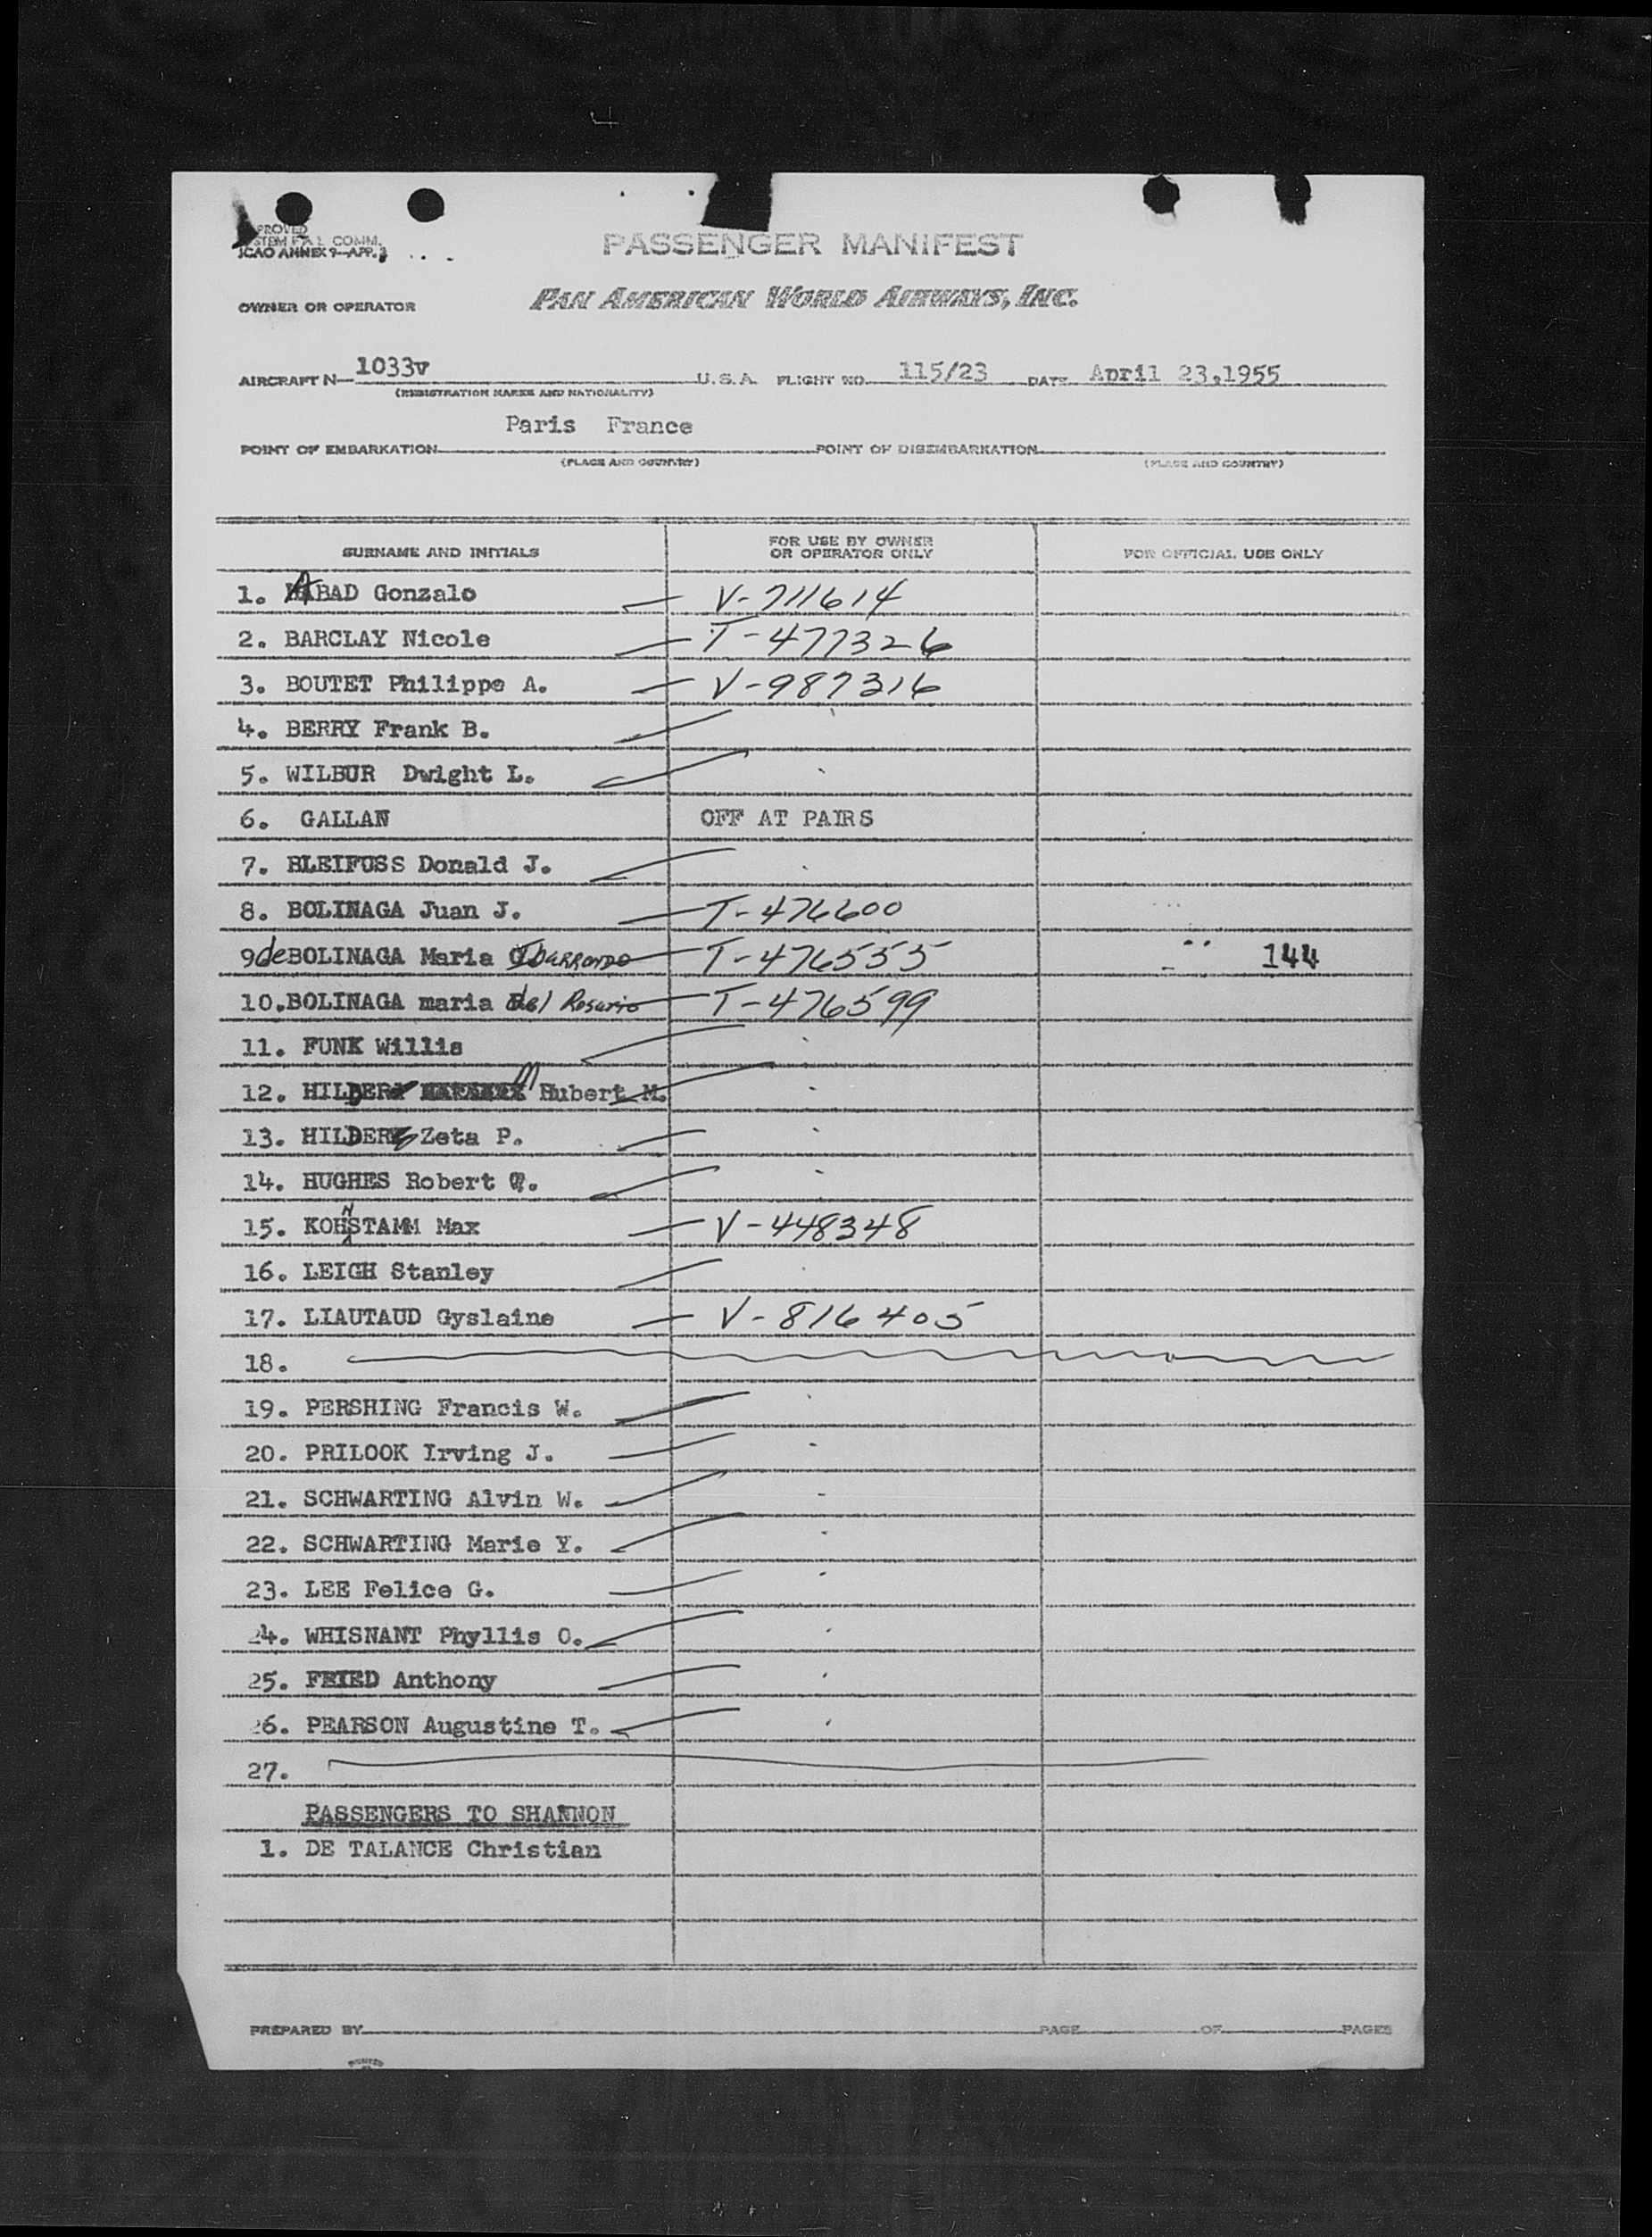 PASSENGER MANIFEST
ICAO ANNEX 9—APP. 3
OWNER OR OPERATOR PAN AMERICAN WORLD AIRWAYS, INC.
AIRCRAFT N— 1033v U.S.A. FLIGHT NO. 115/23 DATE April 23,1955
(REGISTRATION MARKS AND NATIONALITY)
Paris France
POINT OF EMBARKATION POINT OF DISEMBARKATION
(PLACE AND COUNTRY) (PLACE AND COUNTRY)
SURNAME AND INITIALS FOR USE BY OWNER OR OPERATOR ONLY FOR OFFICIAL USE ONLY
1. ABAD Gonzalo V-711614
2. BARCLAY Nicole T-477326
3. BOUTET Philippe A. V-987316
4. BERRY Frank B.
5. WILBUR Dwight L.
6. GALLAN OFF AT PAIRS
7. BLEIFUSS Donald J.
8. BOLINAGA Juan J. T-476600
9 de BOLINAGA Maria Ibarrondo T-476555 144
10. BOLINAGA maria del Rosario T-476599
11. FUNK Willis
12. HILDER Hubert M.
13. HILDER Zeta P.
14. HUGHES Robert
15. KOHNSTAMM Max V-448348
16. LEIGH Stanley
17. LIAUTAUD Gyslaine V-816405
18.
19. PERSHING Francis W.
20. PRILOOK Irving J.
21. SCHWARTING Alvin W.
22. SCHWARTING Marie Y.
23. LEE Felice G.
24. WHISNANT Phyllis O.
25. FRIED Anthony
26. PEARSON Augustine T.
27.
PASSENGERS TO SHANNON
1. DE TALANCE Christian
PREPARED BY PAGE OF PAGES